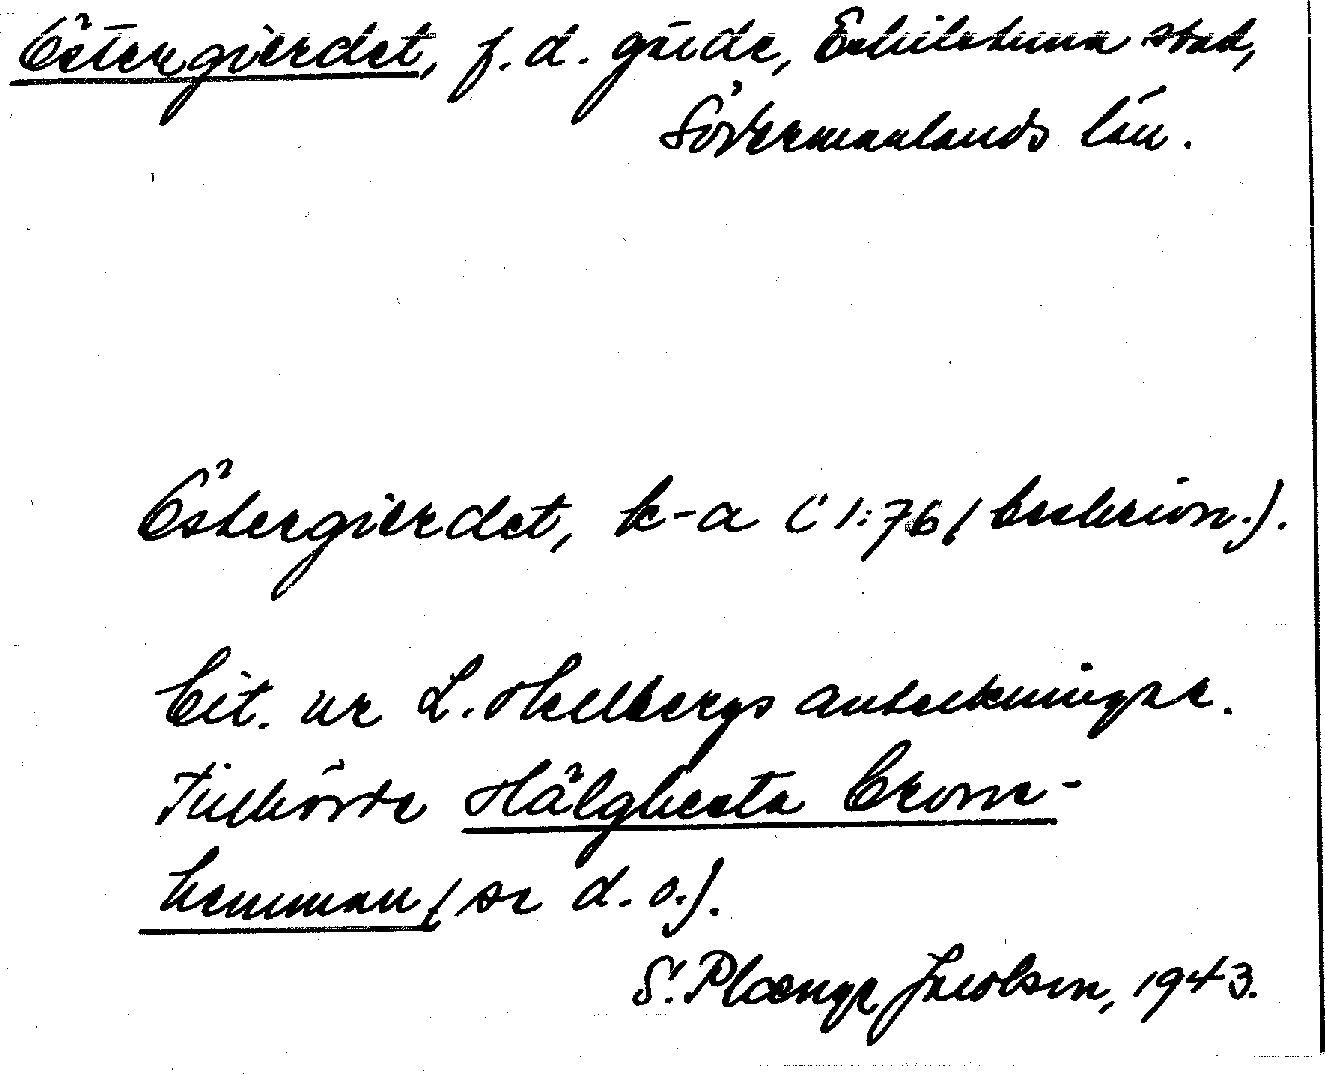 Östergierdet, f. d. gärde, Eskilstuna stad,
Södermanlands län.
Östergierdet, k-a C 1:76 (beskrivn.).
Cit. ur L. Hellbergs anteckningar.
Tillhörde Hälgheata Crono-
hemman (se d. o.).
S. Plænge Jacobson, 1943.